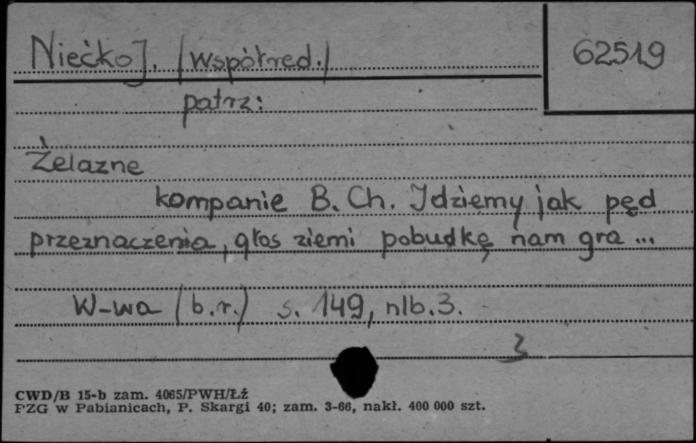 Niećko J. (współred.)
62519
patrz:
Żelazne
kompanie B. Ch. Idziemy jak pęd
przeznaczenia, głos ziemi pobudkę nam gra...
W-wa (b.r.) s. 149, nlb. 3.
3
CWD/B 15-b zam. 4065/PWH/Łź
PZG w Pabianicach, P. Skargi 40; zam. 3-66, nakł. 400 000 szt.